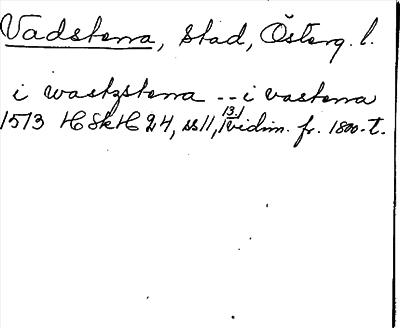 Vadstena, stad, Österg. l.
i wastzstena -- i vastena
1513 HSkH 24, ss 11, 13. Vidim. fr. 1800-t.